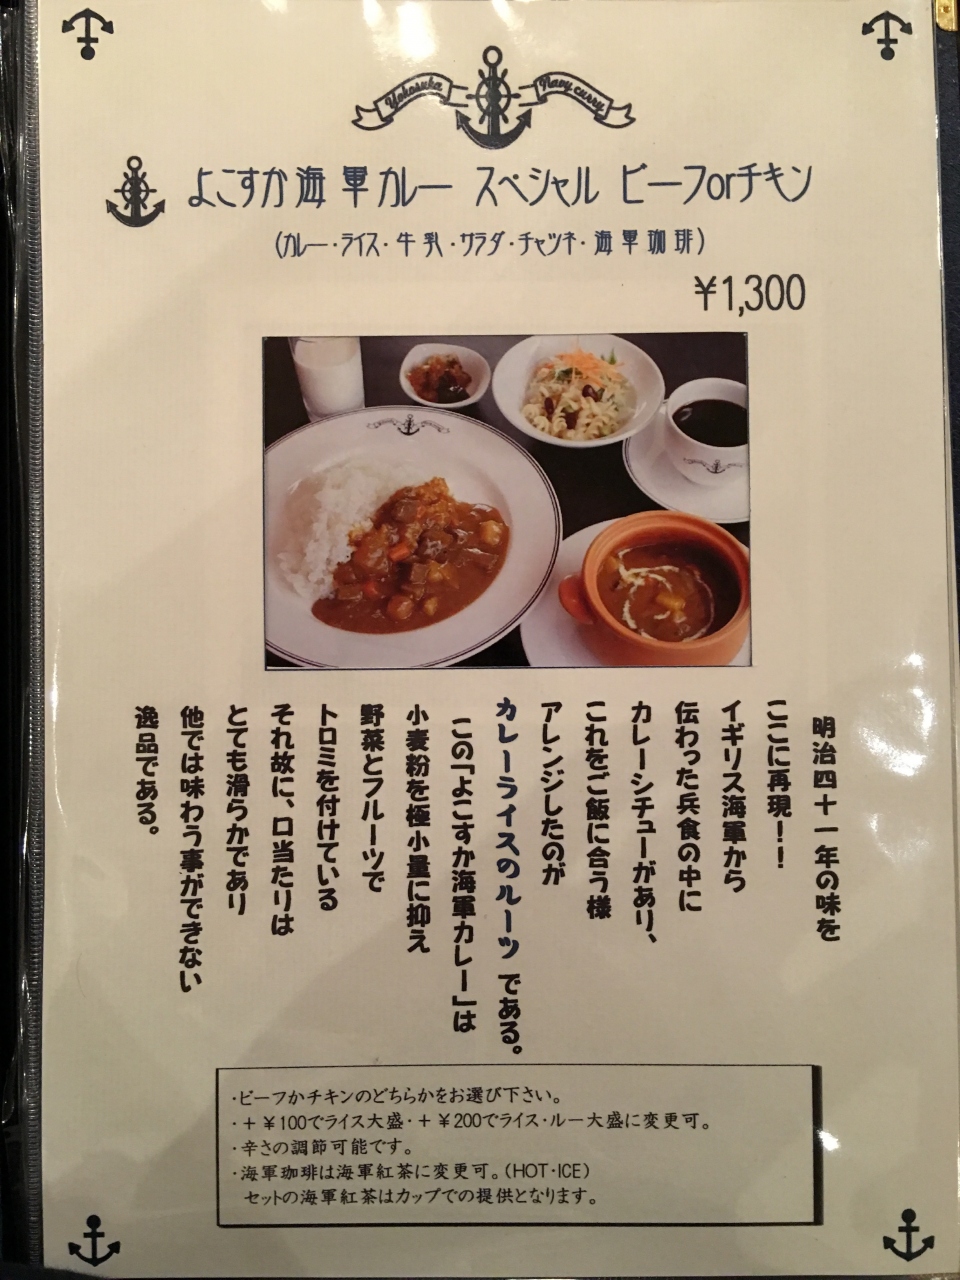 Yokosuka Navy curry
よこすか海軍カレー スペシャル ビーフorチキン
(カレー・ライス・牛乳・サラダ・チャツネ・海軍珈琲)
¥1,300
明治四十一年の味を
ここに再現！！
イギリス海軍から
伝わった兵食の中に
カレーシチューがあり、
これをご飯に合う様
アレンジしたのが
カレーライスのルーツである。
この「よこすか海軍カレー」は
小麦粉を極小量に抑え
野菜とフルーツで
トロミを付けている
それ故に、口当たりは
とても滑らかであり
他では味わう事ができない
逸品である。
・ビーフかチキンのどちらかをお選び下さい。
・＋¥100でライス大盛・＋¥200でライス・ルー大盛に変更可。
・辛さの調節可能です。
・海軍珈琲は海軍紅茶に変更可。(HOT・ICE)
セットの海軍紅茶はカップでの提供となります。